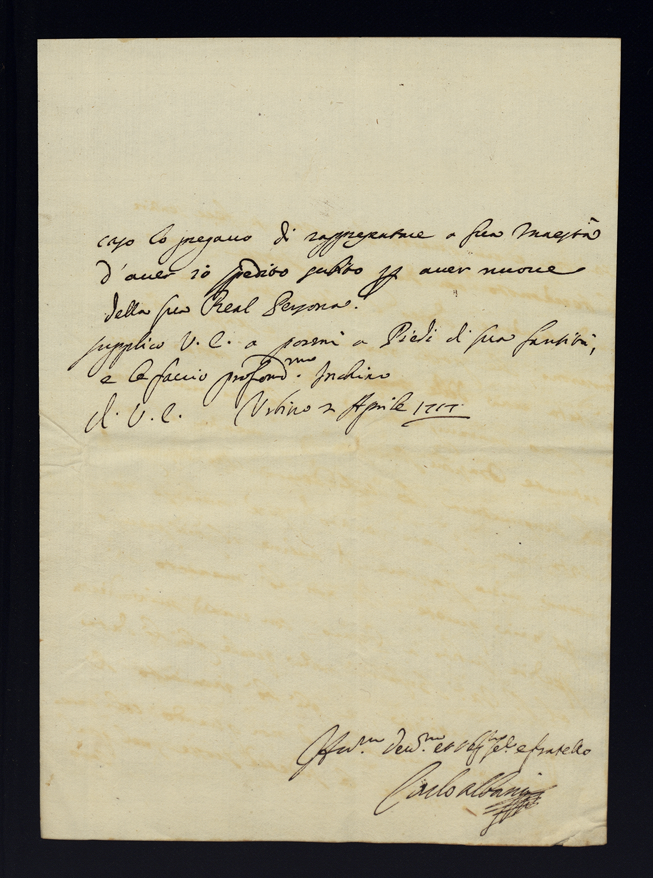 caso lo pregavo di rappresentare a sua Maestà
d'aver io spedito subito p aver nuove
della sua Real Persona.
supplico V. E. a pormi a Piedi di sua Santità,
e le faccio profond.mo Inchino
di V. E. Urbino 2 Aprile 1717
Aff.mo dev.mo et e fratello
Carlo Albani